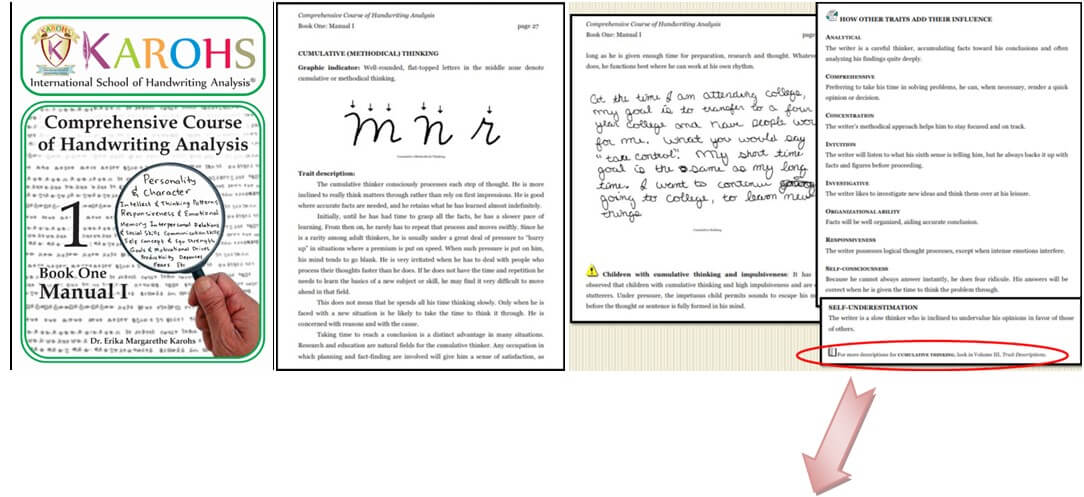 KAROHS
International School of Handwriting Analysis®
Comprehensive Course
of Handwriting Analysis
Personality
& Character
Intellect & Thinking Patterns
Responsiveness & Emotional
Memory Interpersonal Relations
& Social Skills Communication Skills
Self Concept & Ego Strength
Goals & Motivational Drives
Productivity Dexterous
Fears Etc
1
Book One
Manual I
Dr. Erika Margarethe Karohs
Comprehensive Course of Handwriting Analysis
Book One: Manual I page 27
CUMULATIVE (METHODICAL) THINKING
Graphic indicator: Well-rounded, flat-topped letters in the middle zone denote
cumulative or methodical thinking.
m n r
Cumulative (Methodical) Thinking
Trait description:
The cumulative thinker consciously processes each step of thought. He is more
inclined to really think matters through rather than rely on first impressions. He is good
where accurate facts are needed, and he retains what he has learned almost indefinitely.
Initially, until he has had time to grasp all the facts, he has a slower pace of
learning. From then on, he rarely has to repeat that process and moves swiftly. Since he
is a rarity among adult thinkers, he is usually under a great deal of pressure to "hurry
up" in situations where a premium is put on speed. When such pressure is put on him,
his mind tends to go blank. He is very irritated when he has to deal with people who
process their thoughts faster than he does. If he does not have the time and repetition he
needs to learn the basics of a new subject or skill, he may find it very difficult to move
ahead in that field.
This does not mean that he spends all his time thinking slowly. Only when he is
faced with a new situation is he likely to take the time to think it through. He is
concerned with reasons and with the cause.
Taking time to reach a conclusion is a distinct advantage in many situations.
Research and education are natural fields for the cumulative thinker. Any occupation in
which planning and fact-finding are involved will give him a sense of satisfaction, as
Comprehensive Course of Handwriting Analysis
Book One: Manual I page
long as he is given enough time for preparation, research and thought. Whatev
does, he functions best where he can work at his own rhythm.
At the time I am attending college,
my goal is to transfer to a four
year college and have people wor
for me. What you would say
"take control". My short time
goal is the same as my long
time. I want to continue
going to college, to learn new
things
Cumulative Thinking
Children with cumulative thinking and impulsiveness: It has
observed that children with cumulative thinking and high impulsiveness and are
stutterers. Under pressure, the impetuous child permits sounds to escape his m
before the thought or sentence is fully formed in his mind.
HOW OTHER TRAITS ADD THEIR INFLUENCE
ANALYTICAL
The writer is a careful thinker, accumulating facts toward his conclusions and often
analyzing his findings quite deeply.
COMPREHENSIVE
Preferring to take his time in solving problems, he can, when necessary, render a quick
opinion or decision.
CONCENTRATION
The writer's methodical approach helps him to stay focused and on track.
INTUITION
The writer will listen to what his sixth sense is telling him, but he always backs it up with
facts and figures before proceeding.
INVESTIGATIVE
The writer likes to investigate new ideas and think them over at his leisure.
ORGANIZATIONAL ABILITY
Facts will be well organized, aiding accurate conclusion.
RESPONSIVENESS
The writer possesses logical thought processes, except when intense emotions interfere.
SELF-CONSCIOUSNESS
Because he cannot always answer instantly, he does fear ridicule. His answers will be
correct when he is given the time to think the problem through.
SELF-UNDERESTIMATION
The writer is a slow thinker who is inclined to undervalue his opinions in favor of those
of others.
For more descriptions for CUMULATIVE THINKING, look in Volume III, Trait Descriptions.